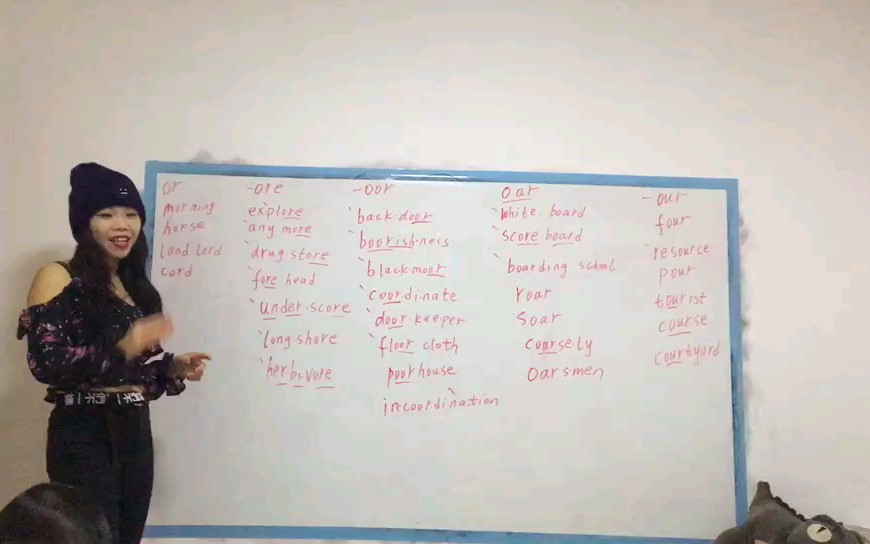 or
morning
horse
landlord
cord
-ore
explore
any more
drug store
fore head
under.score
long.shore
her.bi.vore
-oor
back.door
boorish.ness
blackmoor
coor.di.nate
door.keeper
floor.cloth
poorhouse
incoordination
oar
white.board
score.board
boarding school
roar
soar
coarsely
oarsmen
-our
four
resource
pour
tourist
course
courtyard